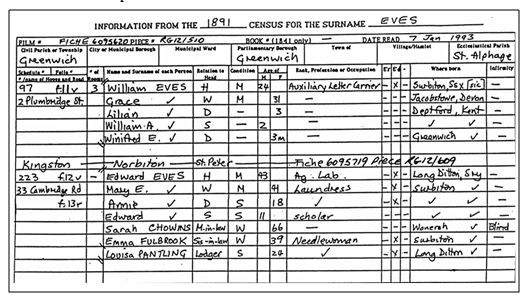 INFORMATION FROM THE 1891 CENSUS FOR THE SURNAME EVES
FILM # FICHE 6095620 PIECE # RG12/510 BOOK # (1841 only) — DATE READ 7 Jan 1993
Civil Parish or Township City or Municipal Borough Municipal Ward Parliamentary Borough Town of Village/Hamlet Ecclesiastical Parish
Greenwich Greenwich St. Alphage
Schedule # Folio # # of Name and Surname of each Person Relation to Head Condition Age of M F Rank, Profession or Occupation Er Ed Where born Infirmity
97 f.11v 3 William EVES H M 24 Auxiliary Letter Carrier - x - Surbiton, Ssx [sic] —
2 Plumbridge St. Grace ✓ W M 31 — --- Jacobstowe, Devon —
Lilian ✓ D — 3 — --- Deptford, Kent —
William A. ✓ S — 2 — --- ✓ ✓ —
Winifred E. ✓ D — 3m — --- Greenwich ✓ —
Kingston — Norbiton — St. Peter Fiche 6095719 Piece RG12/609
223 f.12v — Edward EVES H M 43 Ag. Lab. - x - Long Ditton, Sry —
33 Cambridge Rd Mary E. ✓ W M 41 Laundress - x - Surbiton ✓ —
f.13r Annie ✓ D S 18 ✓ - x - ✓ ✓ —
Edward ✓ S S 11 scholar --- ✓ ✓ —
Sarah CHOWNS M-in-law W 66 — --- Wonersh ✓ Blind
Emma FULBROOK Sis-in-law W 39 Needlewoman - x - Surbiton ✓ —
Louisa PANTLING Lodger S 24 ✓ - x - Long Ditton ✓ —